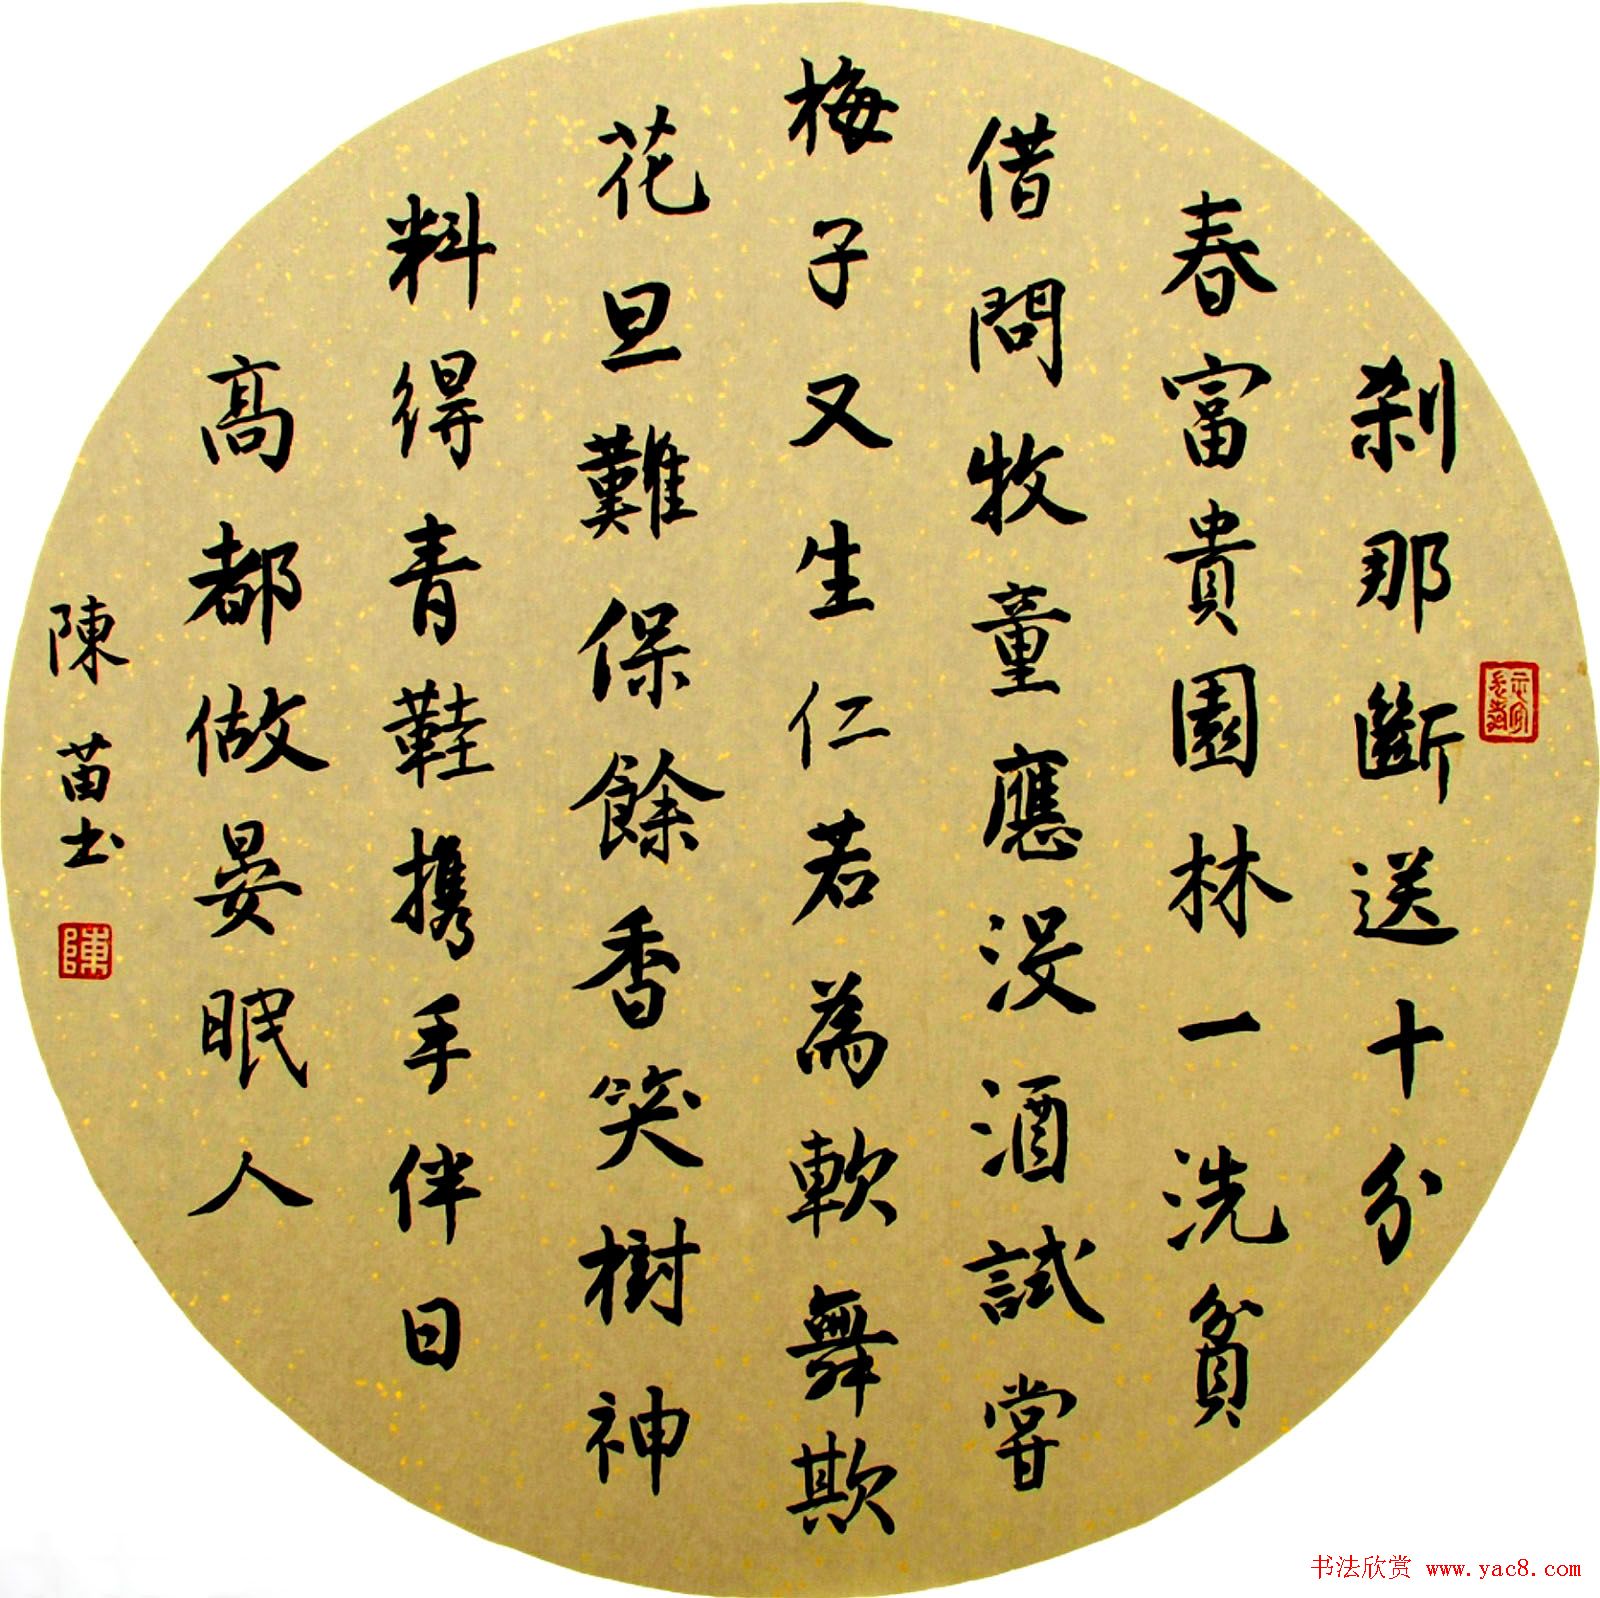 刹那斷送十分
春富貴園林一洗貧
借問牧童應没酒試嘗
梅子又生仁若為軟舞欺
花旦難保餘香笑樹神
料得青鞋携手伴日
髙都做晏眠人
陳苗书
陳
书法欣赏 www.yac8.com